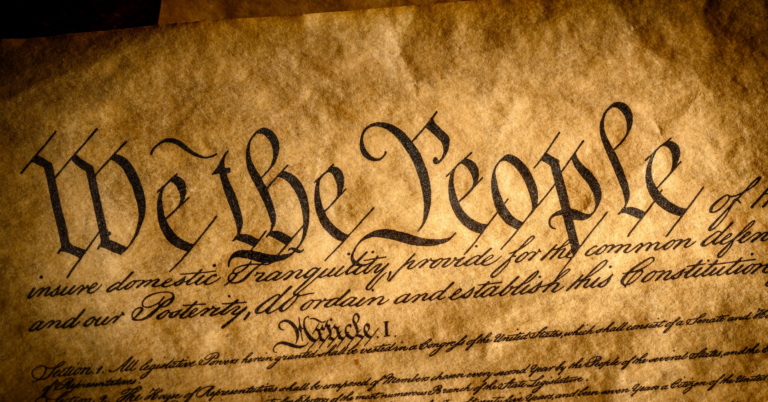 We the People of
insure domestic Tranquility, provide for the common defen
and our Posterity, do ordain and establish this Constitution
Article. I.
Section. 1. All legislative Powers herein granted shall be vested in a Congress of the United States, which shall consist of a Senate and
of Representatives.
Section. 2. The House of Representatives shall be composed of Members chosen every second Year by the People of the several States, and the
of the most numerous Branch of the State Legislature.
been seven Years a Citizen of the United